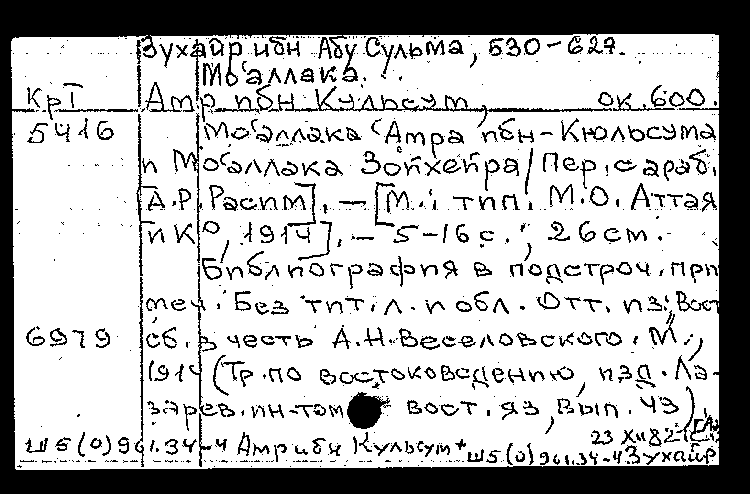 Зухайр ибн Абу Сульма, 530-627.
Мо‘аллака...
КрI Амр ибн Кульсум, ок.600.
5416 Мо‘аллака ‘Амра ибн-Кюльсума
и Мо‘аллака Зойхейра/Пер. с араб.
[А.Р.Расим]. — [М.: тип. М.О. Аттая
и К°, 1914]. — 5-16 с.; 26 см.
Библиография в подстроч. при
меч. Без тит. л. и обл. Отт. из: Вост
6979 сб. в честь А.Н.Веселовского. М.,
1914 (Тр. по востоковедению, изд. Ла-
зарев. ин-том вост. яз, Вып. 43)
23 XII 82
Ш5(0)961.34-4 Амр ибн Кульсум + Ш5(0)961.34-4 Зухайр